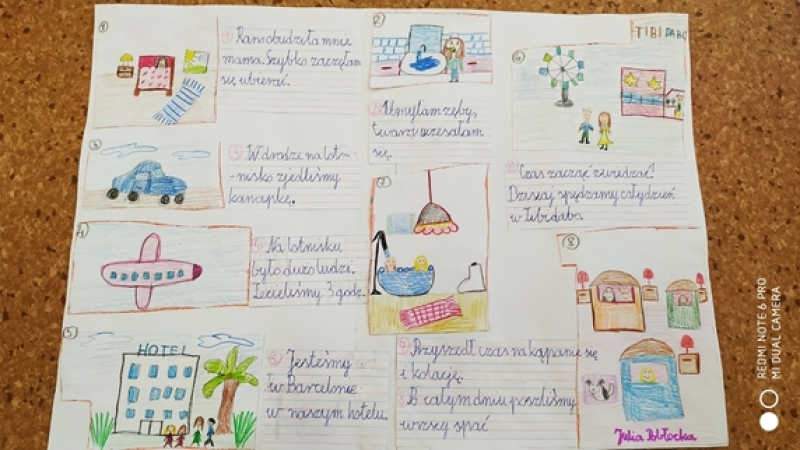 1
1 Rano obudziła mnie
mama. Szybko zaczęłam
się ubierać.
2
2 Umyłam zęby,
twarz i uczesałam
się.
3
3 W drodze na lot-
-nisko zjedliśmy
kanapkę.
4
4 Na lotnisku
było dużo ludzi.
Lecieliśmy 3 godz.
5
HOTEL
5 Jesteśmy
w Barcelonie
w naszym hotelu.
6
TIBIDABO
6 Czas zacząć zwiedzać!
Dzisiaj spędzamy cały dzień
w Tibidabo.
7
7 Przyszedł czas na kąpanie się
i kolację.
8
8 Po całym dniu poszliśmy
wszscy spać
Julia
REDMI NOTE 6 PRO
MI DUAL CAMERA